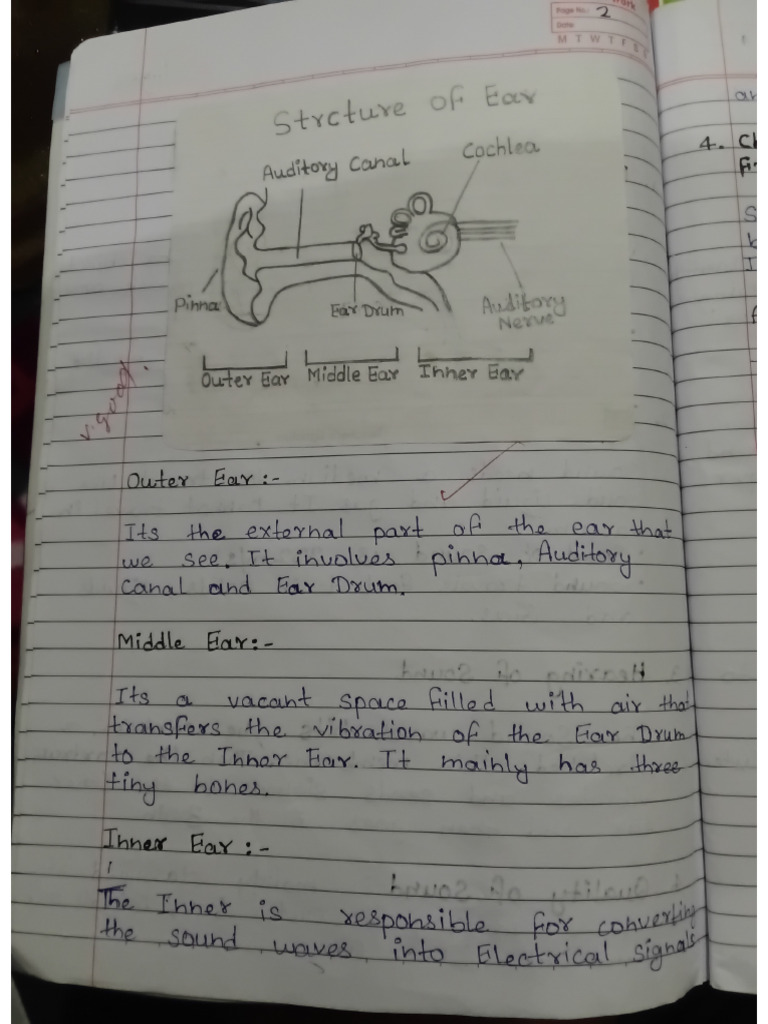 Page No.: 2
Date:
M T W T F S S
Strcture of Ear
Auditory Canal
Cochlea
Pinna
Ear Drum
Auditory
Nerve
Outer Ear
Middle Ear
Inner Ear
v.good.
Outer Ear :-
Its the external part of the ear that
we see. It involves pinna, Auditory
Canal and Ear Drum.
Middle Ear:-
Its a vacant space filled with air that
transfers the vibration of the Ear Drum
to the Inner Ear. It mainly has three
tiny bones.
Inner Ear :-
The Inner is responsible for converting
the sound waves into Electrical signals
4.